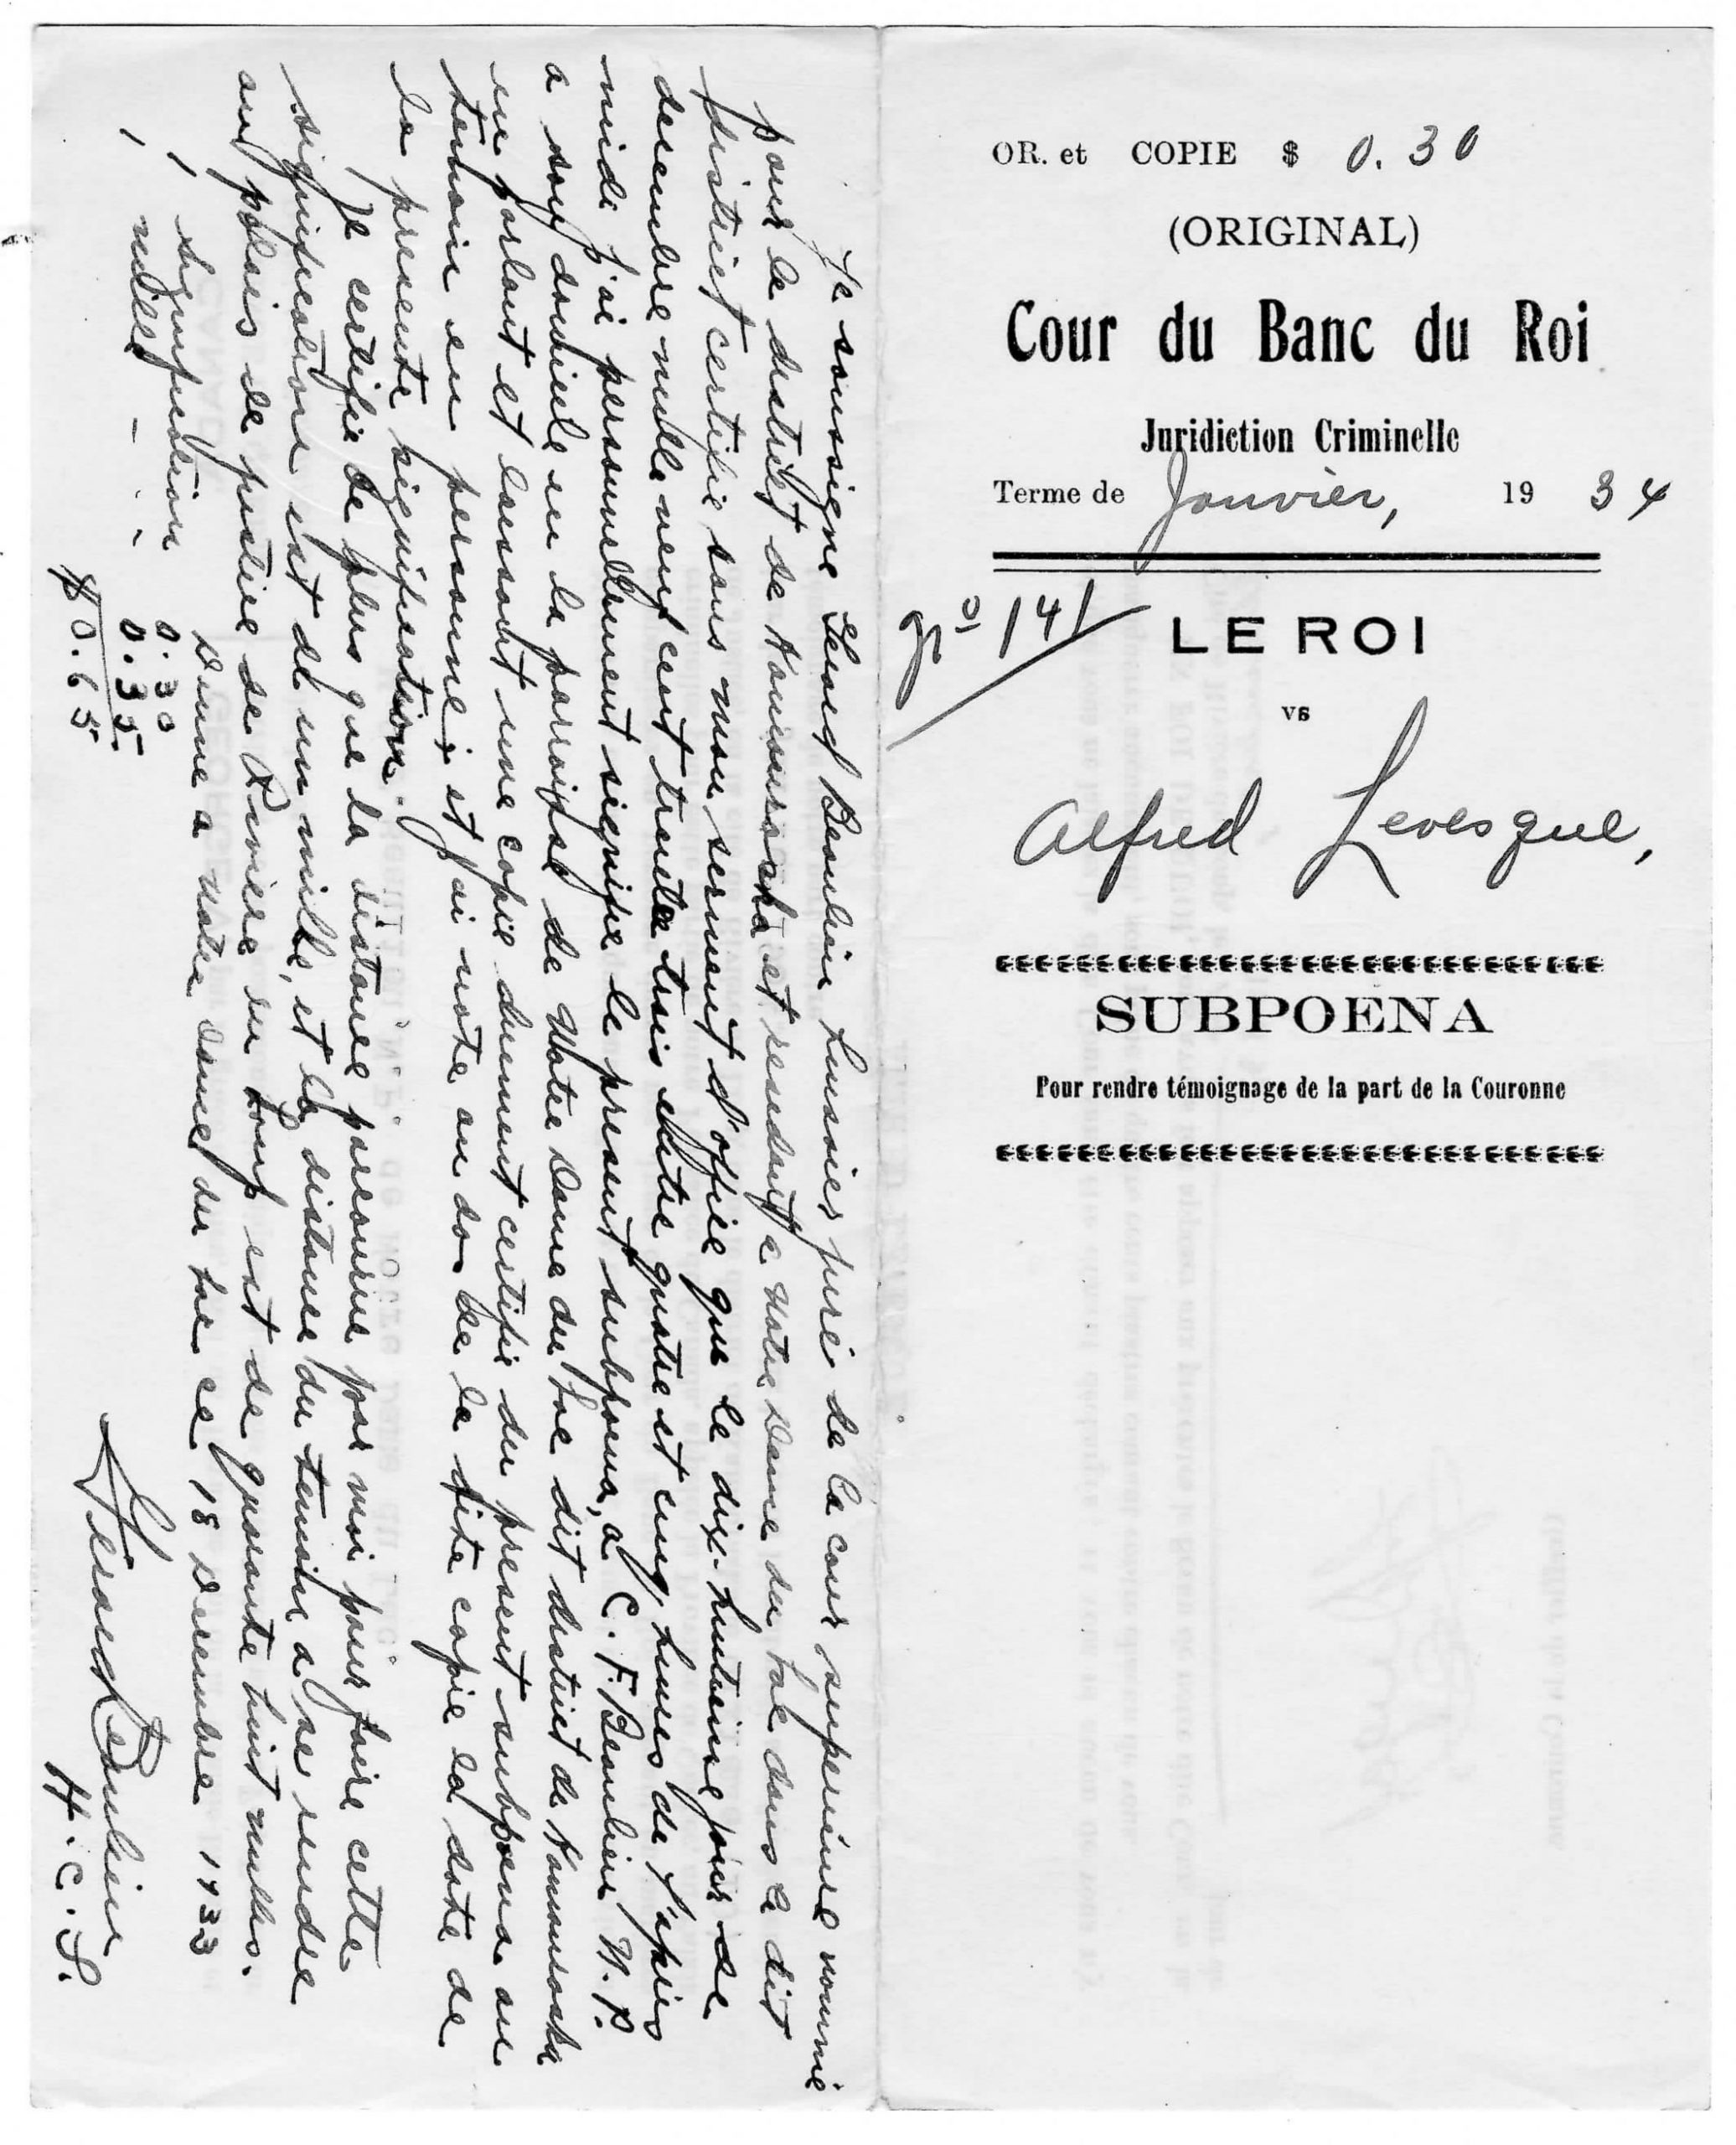 OR. et COPIE $ 0.30
(ORIGINAL)
Cour du Banc du Roi
Juridiction Criminelle
Terme de Janvier, 1934
No 141
LE ROI
vs
Alfred Levesque,
SUBPOENA
Pour rendre témoignage de la part de la Couronne
Je soussigne Beaulieu huissier juré de la cour superieure nommé
pour le district de Kamouraska et residant a Notre Dame du Lac dans le dit
district certifie sous mon serment d'office que le dix-huitieme jour de
decembre mille neuf cent trente trois entre quatre et cinq heures de l'apres
midi j'ai personnellement signifie le present subpoena, a C. F. Beaulieu N.P.
a son domicile en la paroisse de Notre Dame du Lac dit district de Kamouraska
en parlant et laissant une copie dument certifie du present subpoena au
temoin en personne; et j'ai note au dos de la dite copie la date de
la presente signification.
Je certifie de plus que la distance parcourue par moi pour faire cette
signification est de un mille, et la distance du temoin a se rendre
au palais de justice de Riviere du Loup est de quarante huit milles.
Donne a Notre Dame du Lac ce 18 Decembre 1933
signification 0.30
milles - - 0.35
$0.65
Beaulieu
H.C.S.